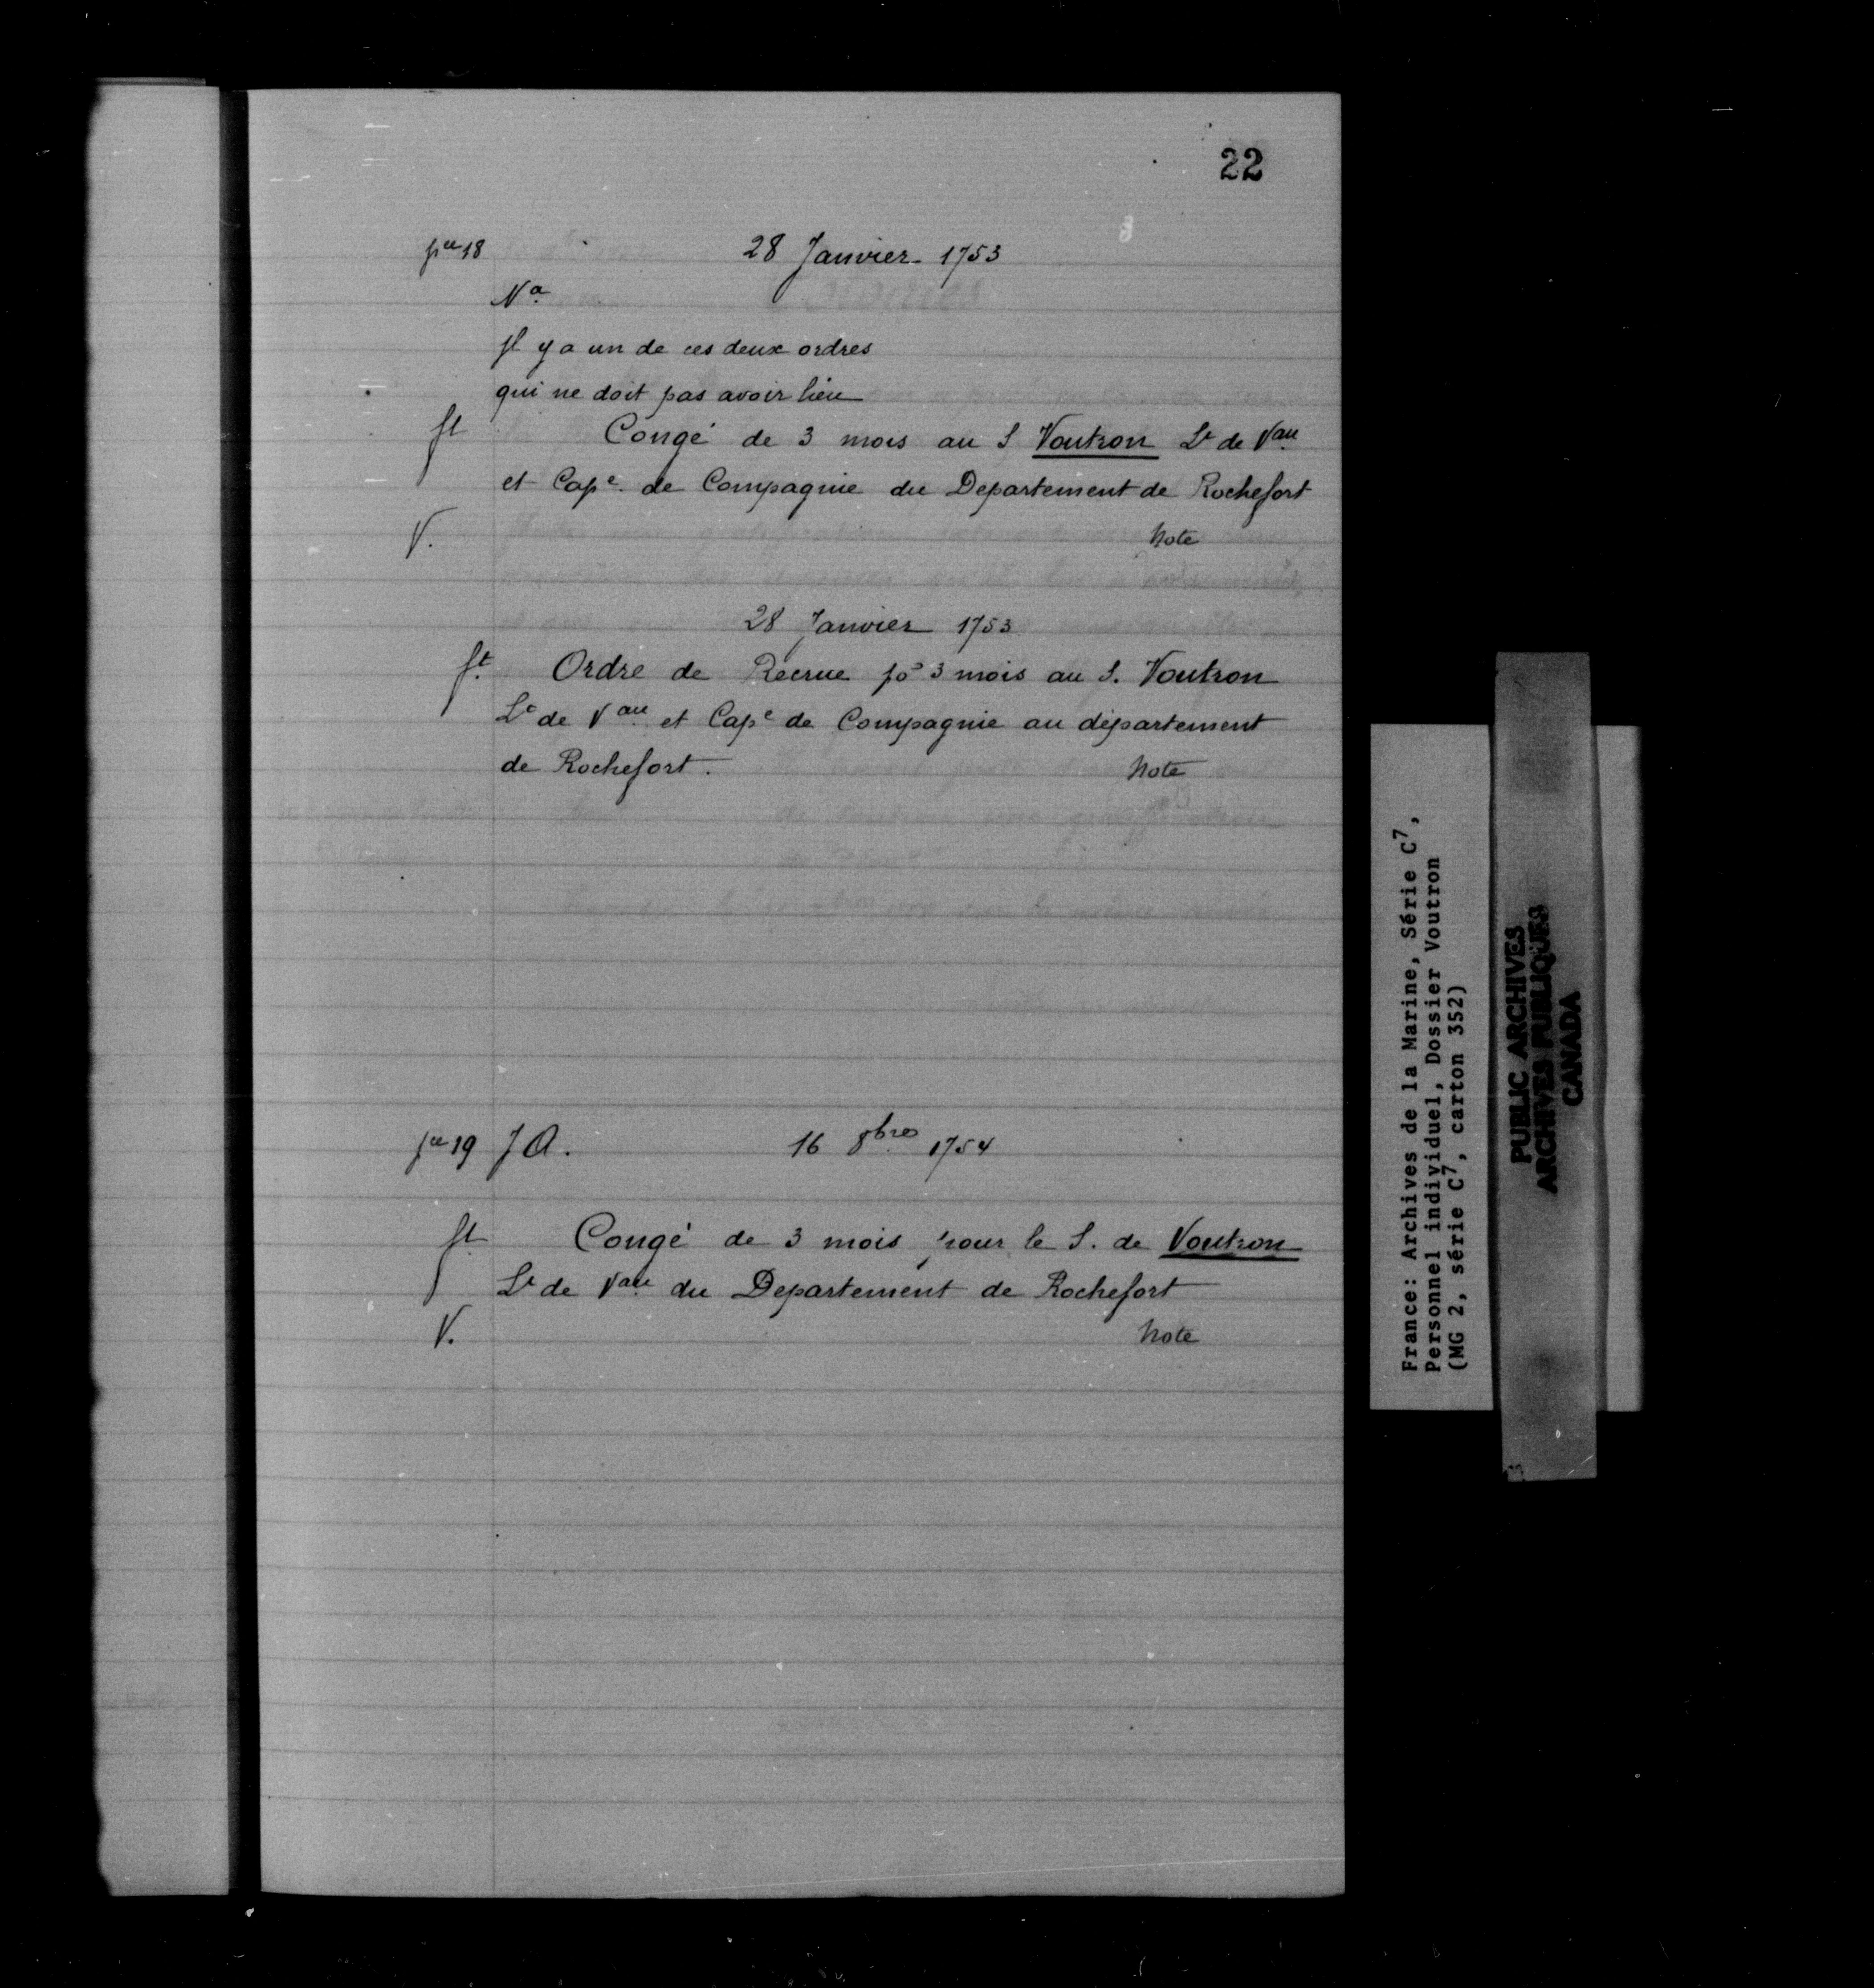 22
pce 18
28 Janvier 1753
Na.
Il y a un de ces deux ordres
qui ne doit pas avoir lieu
ft Congé de 3 mois au S Voutron Lt de Vau
et Cape de Compagnie du Departement de Rochefort
V. Note
28 Janvier 1753
ft. Ordre de Recrue po 3 mois au S. Voutron
Lt de Vau et Cape de Compagnie au département
de Rochefort. Note
pce 19 J A. 16 8bre 1754
ft Congé de 3 mois pour le S. de Voutron
Lt de Vau du Departement de Rochefort
V. Note
France: Archives de la Marine, Série C7,
Personnel individuel, Dossier Voutron
(MG 2, série C7, carton 352)
PUBLIC ARCHIVES
ARCHIVES PUBLIQUES
CANADA